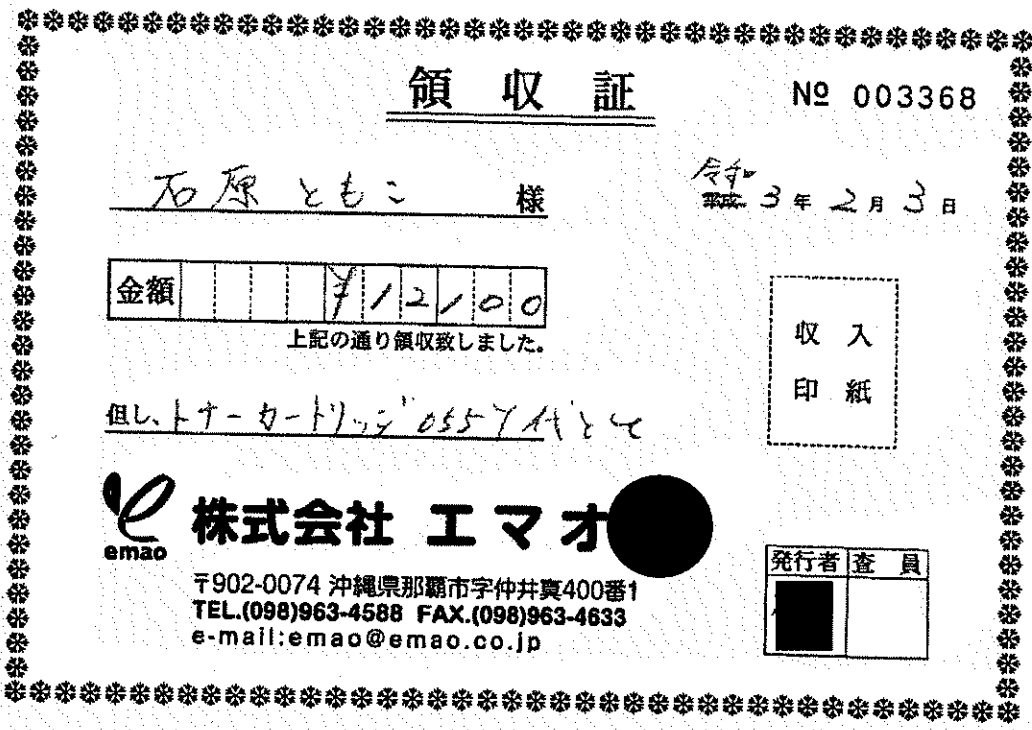 領収証
№ 003368
石原 ともこ 様
令和 平成 3年 2月 3日
金額 ¥12100
上記の通り領収致しました。
収入
印紙
但し、トナーカートリッジ055Y代として
emao
株式会社 エマオ
〒902-0074 沖縄県那覇市字仲井真400番1
TEL.(098)963-4588 FAX.(098)963-4633
e-mail:emao@emao.co.jp
発行者 査員